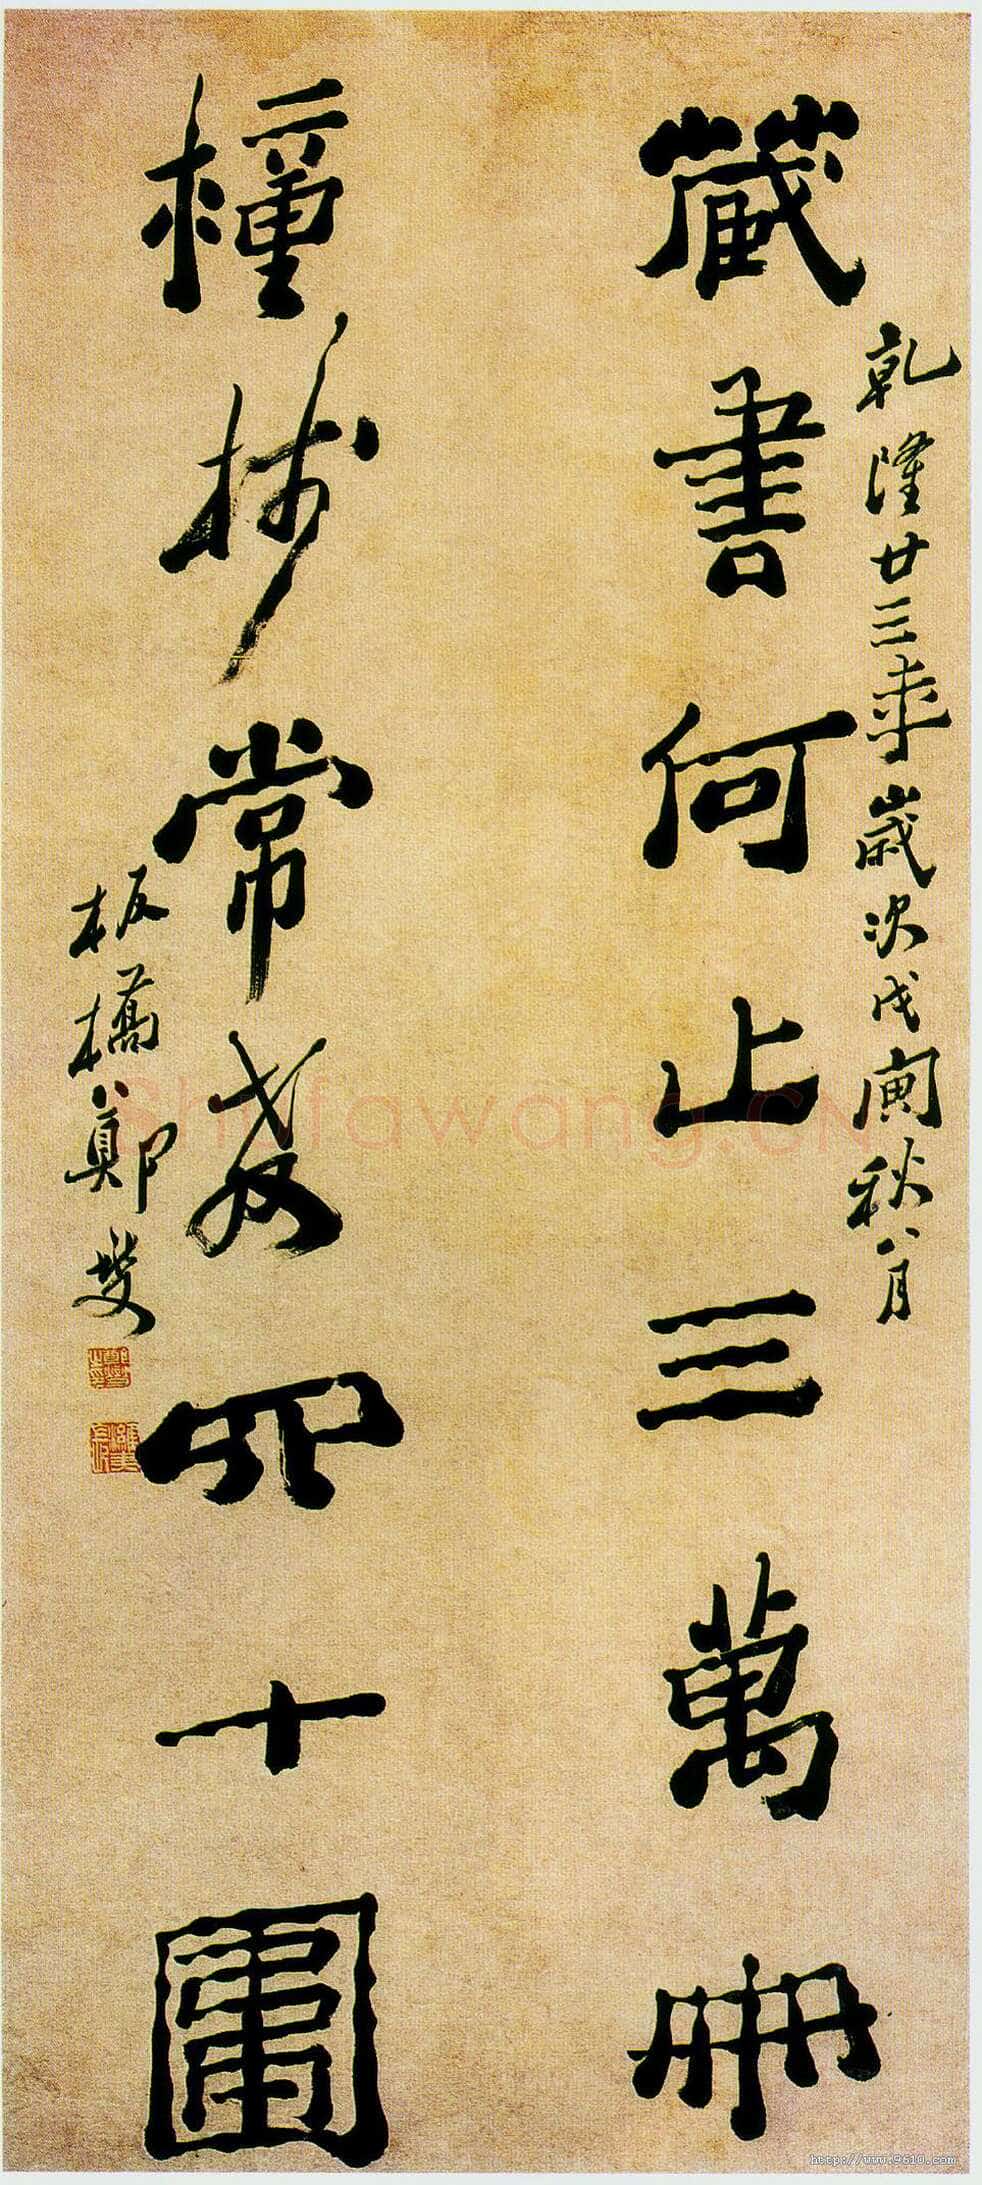 乾隆廿三年歲次戊寅秋八月
藏書何止三萬冊
種樹常教四十圍
板橋鄭燮
Shufawang.CN
http://www.9610.com